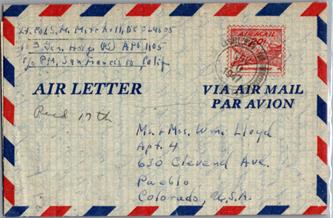 Lt. Col. S. M. Mitchell,
APO 1105
c/o PM, San Francisco Calif
AIR MAIL
AIR LETTER
VIA AIR MAIL
PAR AVION
Recd 17th
Mr & Mrs. Wm. Lloyd
Apt. 4
630 Cleveland Ave.
Pueblo
Colorado, U.S.A.